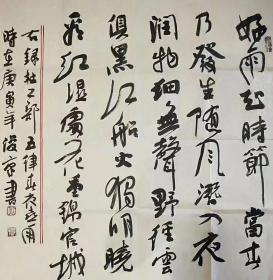 好雨知時節當春
乃發生随風潛入夜
润物细無聲野径雲
俱黑江船火獨明曉
看红湿處花重錦官城
右録杜工部五律春夜喜雨
時在庚寅年俊京書